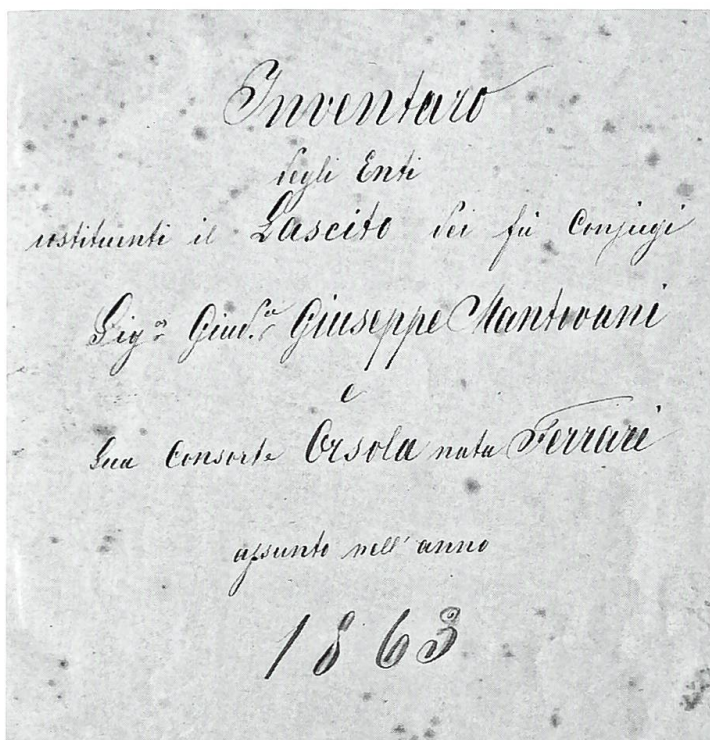 Inventaro
degli Enti
costituenti il Lascito dei fù Conjugi
Sig.r Giud.ce Giuseppe Mantovani
e
Sua Consorte Orsola nata Ferrari
assunto nell'anno
1863